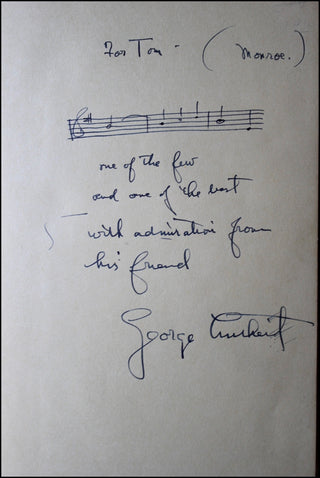 For Tom - (Monroe.)
one of the few
and one of the best
with admiration from
his friend
George